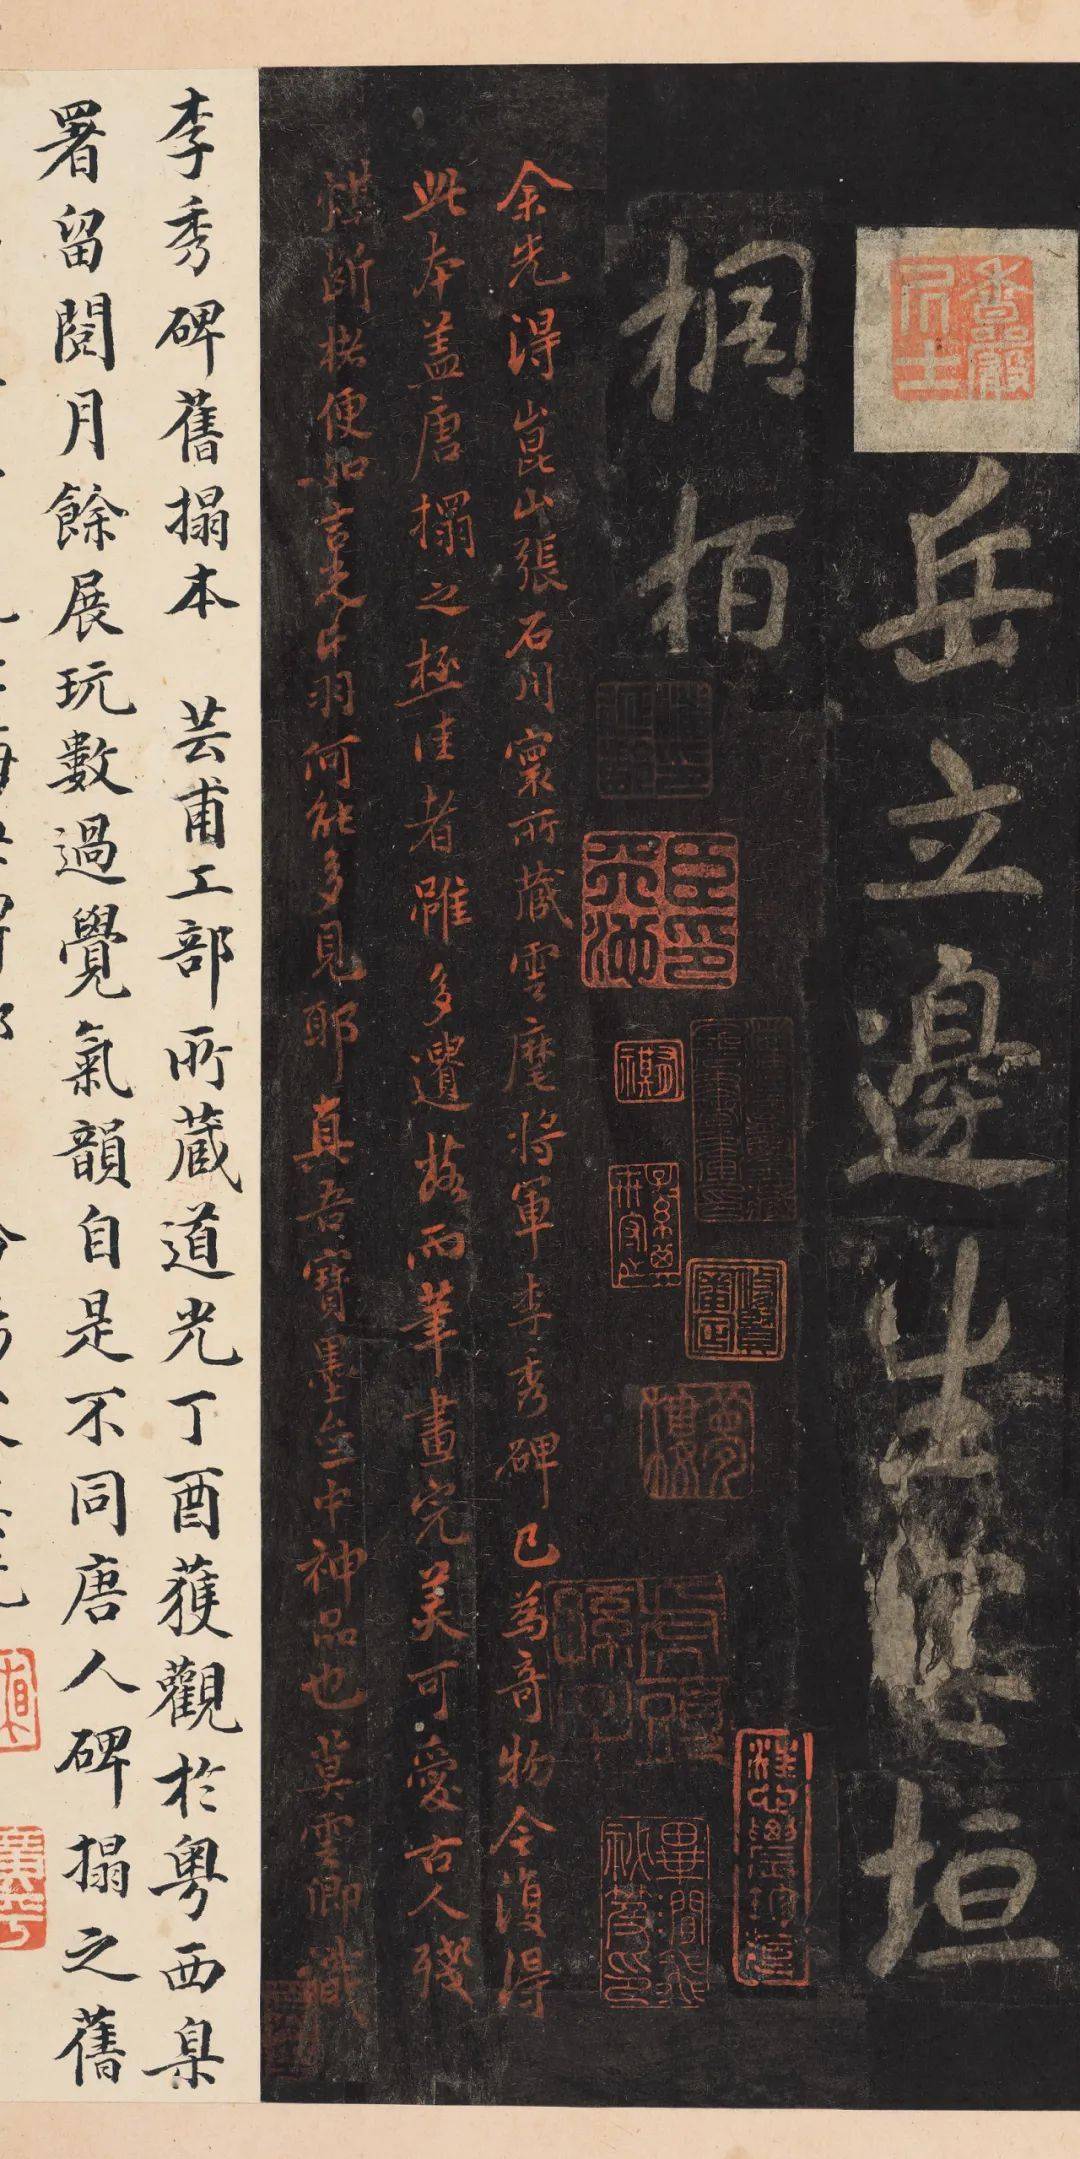 岳立邊
垣
桐柏
余先得崑山張石川寰所藏雲麾將軍李秀碑已為奇物今復得
此本蓋唐搨之極佳者雖多遺落而筆畫完美可愛古人殘
碑斷楮便如吉光片羽何能多見耶真吾寶墨齋中神品也莫雲卿識
李秀碑舊搨本 芸甫工部所藏道光丁酉獲觀於粵西臬
署留閱月餘展玩數過覺氣韻自是不同唐人碑搨之舊